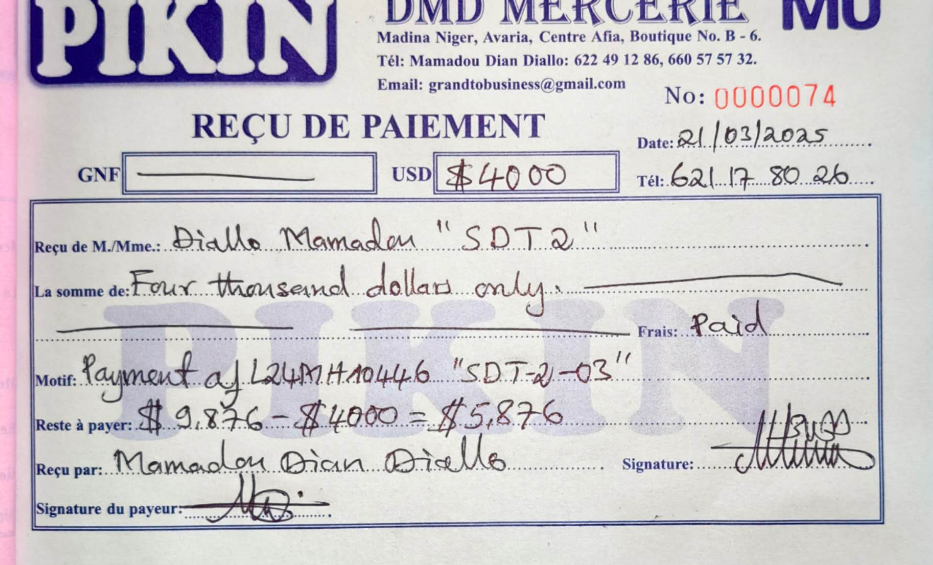 PIKIN
DMD MERCERIE
MU
Madina Niger, Avaria, Centre Afia, Boutique No. B - 6.
Tél: Mamadou Dian Diallo: 622 49 12 86, 660 57 57 32.
Email: grandtobusiness@gmail.com
No: 0000074
REÇU DE PAIEMENT
Date: 21/03/2025
GNF
USD $4000
Tél: 621 17 80 26
Reçu de M./Mme.: Diallo Mamadou "SDT2"
La somme de: Four thousand dollars only.
Frais: Paid
PIKIN
Motif: Payment of L24MHA0446 "SDT-2-03"
Reste à payer: $ 9,876 - $4000 = $5,876
Reçu par: Mamadou Dian Diallo
Signature:
Signature du payeur: